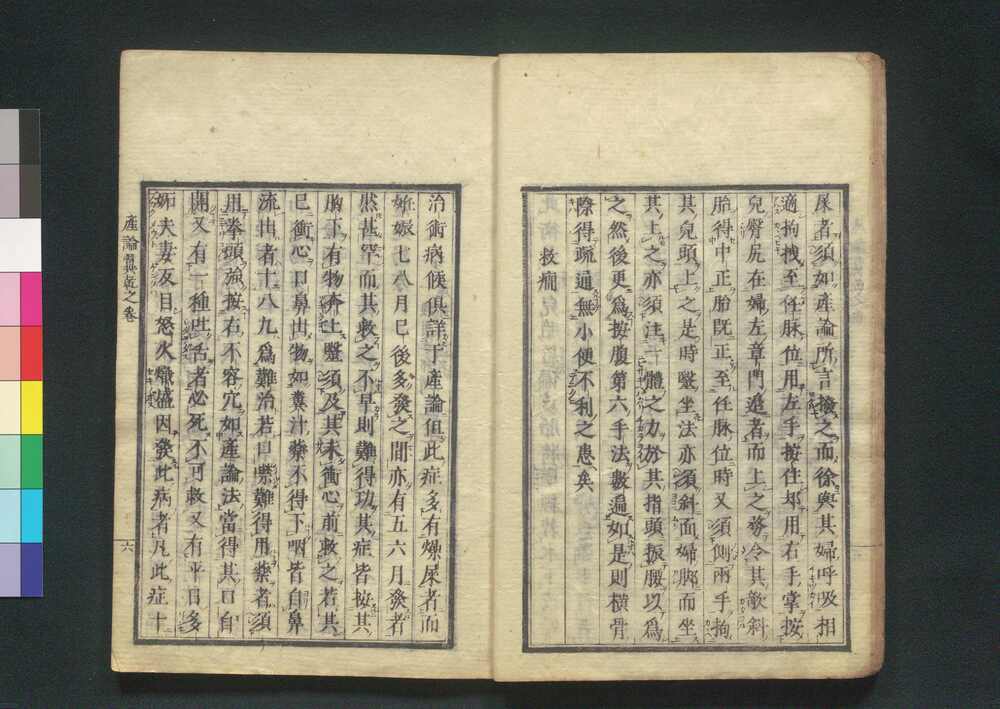 屎者須如産論所言撥之而徐與其婦呼吸相
適拘拽至任脉位用左手按住却用右手掌按
兒臀尻在婦左章門邉者而上之務令其欹斜
胎得中正胎既正至任脉位時又須側兩手拘
其兒頭上之是時毉坐法亦須斜面婦脚而坐
其上之亦須注一體之力於其指頭振腰以爲
之然後更爲按腹第六手法數遍如是則横骨
際得疏通無小便不利之患矣
救癇
治術病候俱詳于産論但此症多有燥屎者而
妊娠七八月已後多發之間亦有五六月發者
然甚罕而其救之不早則難得功其症皆按其
胸下有物奔上毉須及其未衝心前救之若其
已衝心口鼻出物如糞汁藥不得下咽皆自鼻
流出者十八九爲難治若口噤難得用藥者須
用拳頭強按右不容穴如産論法當得其口自
開又有一種吐舌者必死不可救又有平日多
妬夫妻反目怒火熾盛因發此病者凡此症十
産論翼乾之卷
六